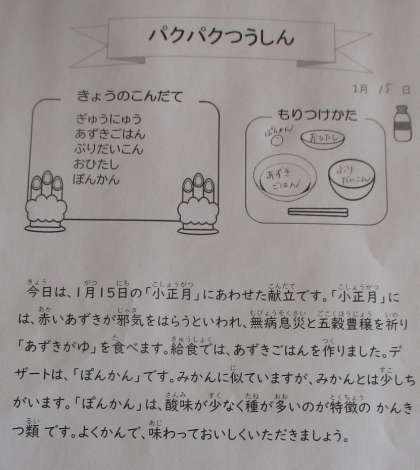 パクパクつうしん
1月15日
きょうのこんだて
ぎゅうにゅう
あずきごはん
ぶりだいこん
おひたし
ぽんかん
もりつけかた
ぽんかん
おひたし
あずき
ごはん
ぶり
だいこん
今日は、1月15日の「小正月」にあわせた献立です。「小正月」に
は、赤いあずきが邪気をはらうといわれ、無病息災と五穀豊穣を祈り
「あずきがゆ」を食べます。給食では、あずきごはんを作りました。デ
ザートは、「ぽんかん」です。みかんに似ていますが、みかんとは少しち
がいます。「ぽんかん」は、酸味が少なく種が多いのが特徴の かんき
つ類 です。よくかんで、味わっておいしくいただきましょう。